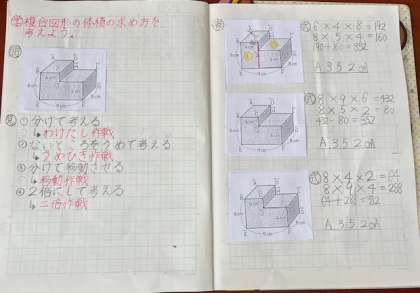 学 複合図形の体積の求め方を
考えよう。
問
見 ①分けて考える
↳わけたし作戦
②ないところをうめて考える
↳うめひき作戦
③分けて移動させる
↳移動作戦
④2倍にして考える
↳二倍作戦
式 6×4×8=192
8×5×4=160
190+160=352
A.352㎤
式 8×9×6=432
8×5×2=80
432-80=352
A.352㎤
式 8×4×2=64
8×9×4=288
A.352㎤